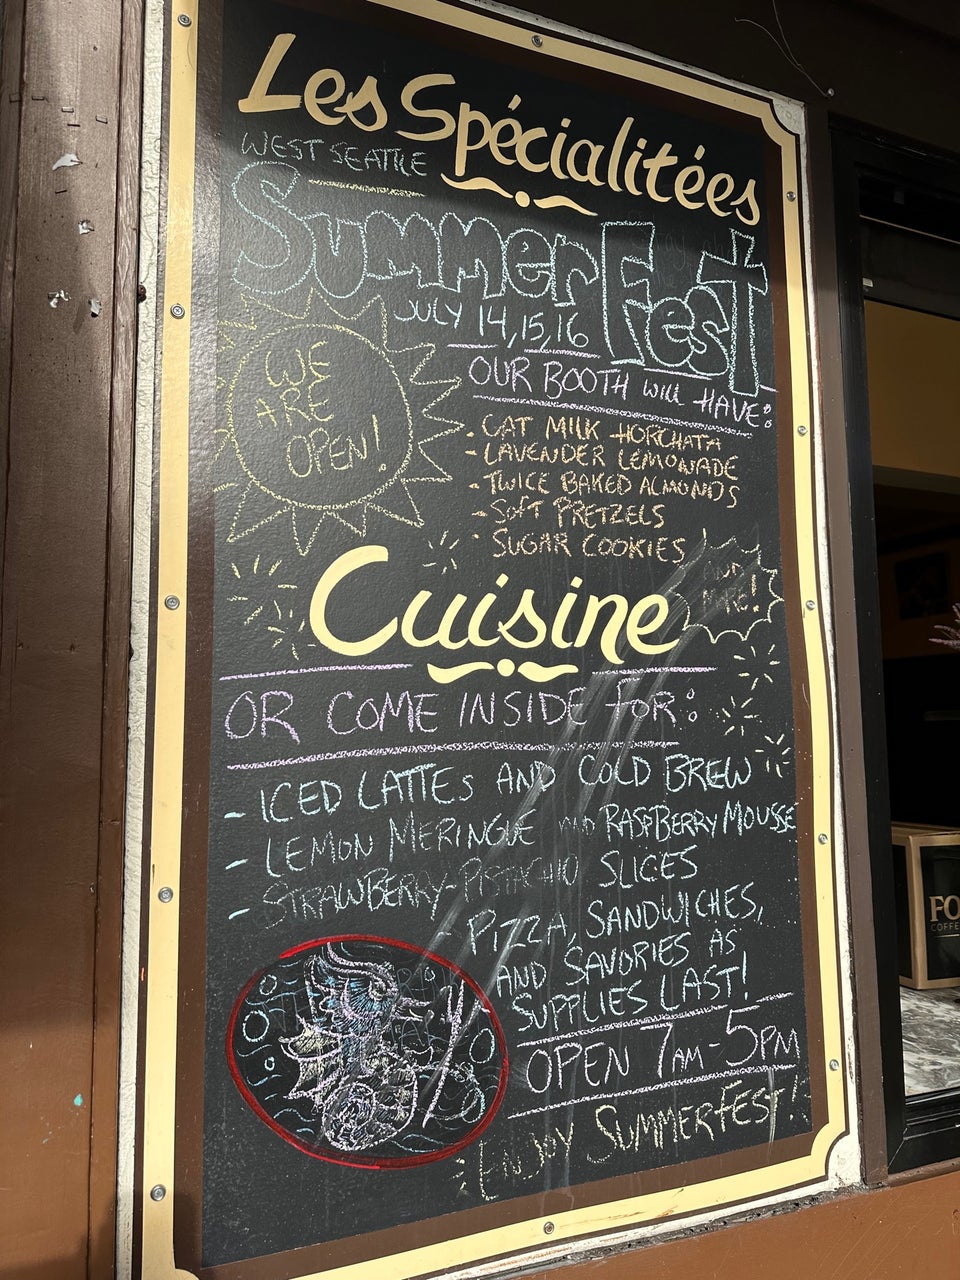 Les Spécialitées
WEST SEATTLE
SUMMER FEST
JULY 14, 15, 16
WE
ARE
OPEN!
OUR BOOTH will HAVE:
- OAT MILK HORCHATA
- LAVENDER LEMONADE
- TWICE BAKED ALMONDS
- SOFT PRETZELS
- SUGAR COOKIES
AND
MORE!
Cuisine
OR COME INSIDE FOR:
- ICED LATTES AND COLD BREW
- LEMON MERINGUE AND RASPBERRY MOUSSE
- STRAWBERRY-PISTACHIO SLICES
PIZZA, SANDWICHES,
AND SAVORIES AS
SUPPLIES LAST!
OPEN 7AM-5PM
ENJOY SUMMERFEST!
FO
COFFE